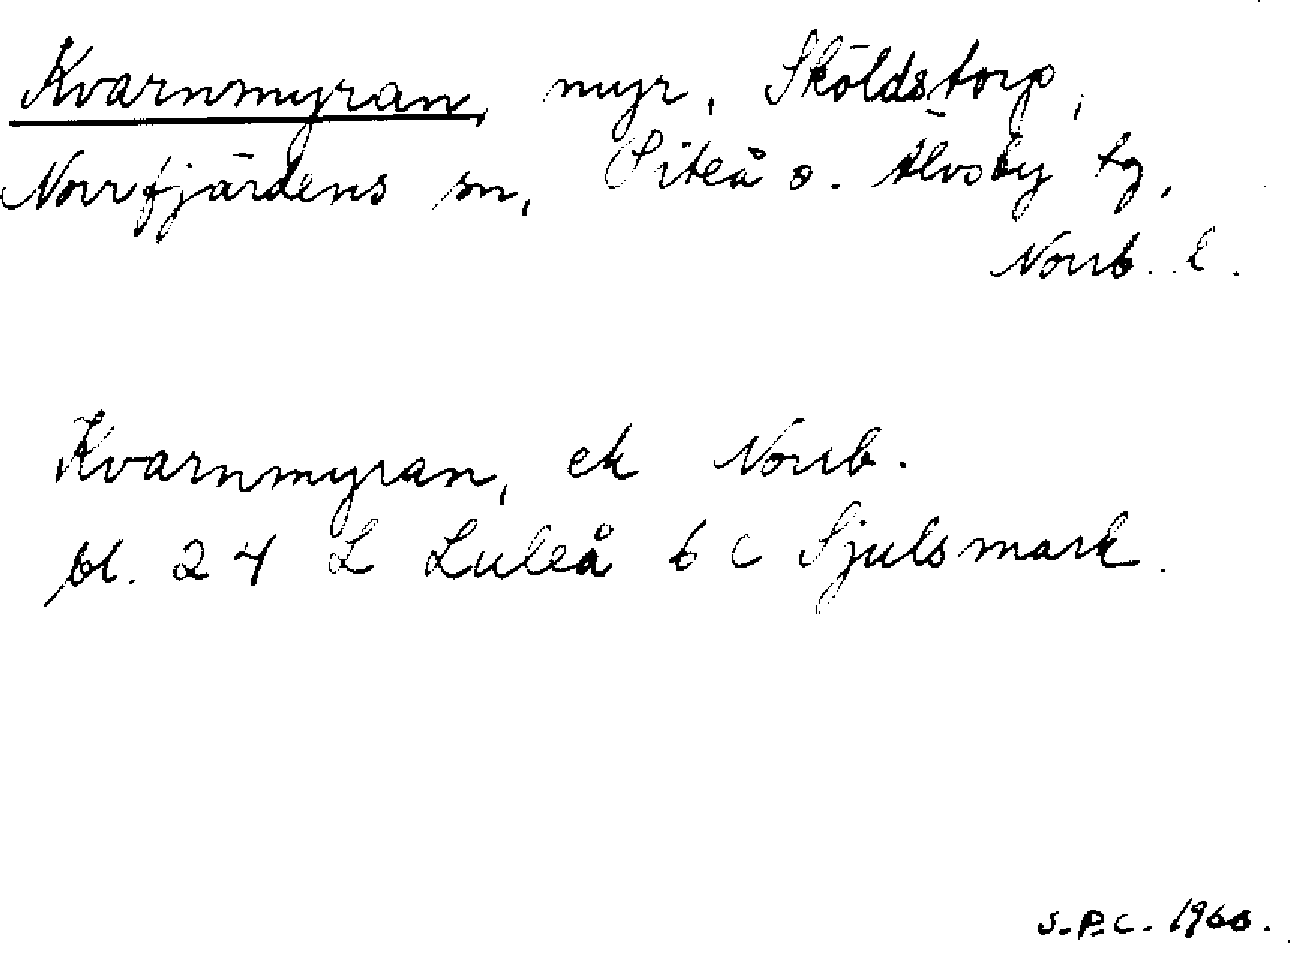 Kvarnmyran, myr, Sköldstorp,
Norrfjärdens sn, Piteå o. Älvsby tg,
Norrb. l.
Kvarnmyran, ek Norrb.
bl. 24 L Luleå 6 c Sjulsmark.
S.P.C. 1966.